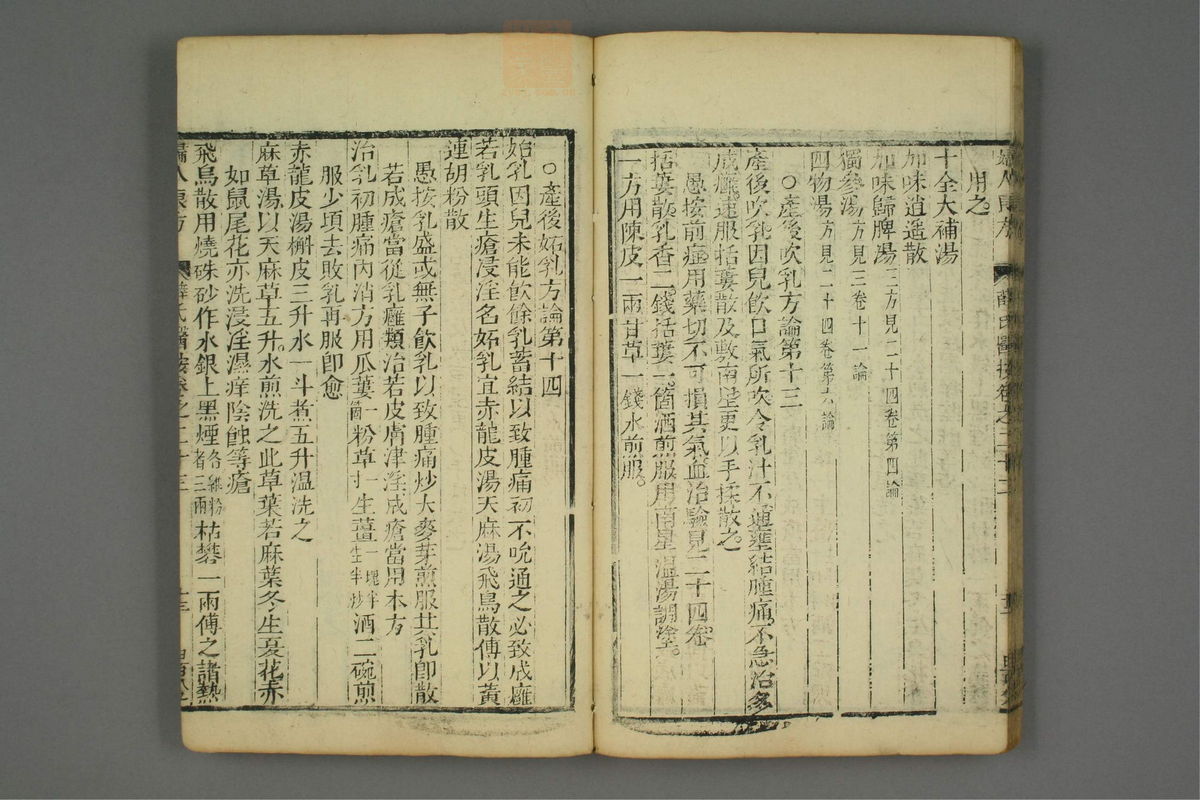 用之
十全大補湯
加味逍遙散
加味歸脾湯三方見二十四卷第四論
獨參湯方見三卷十一論
四物湯方見二十四卷第六論
○產後吹乳方論第十三
產後吹乳因兒飲口氣所吹令乳汁不通壅結腫痛不急治多
成癰速服括蔞散及敷南星更以手揉散之
愚按前症用藥切不可損其氣血治驗見二十四卷
括蔞散乳香二錢括蔞一箇酒煎服用南星溫湯調塗
一方用陳皮一兩甘草一錢水煎服
○產後妬乳方論第十四
始乳因兒未能飲餘乳蓄結以致腫痛初不吮通之必致成癰
若乳頭生瘡浸淫名妬乳宜赤龍皮湯天麻湯飛烏散傅以黃
連胡粉散
愚按乳盛或無子飲乳以致腫痛炒大麥芽煎服其乳即散
若成瘡當從乳癰類治若皮膚津淫成瘡當用本方
治乳初腫痛內消方用瓜蔞一箇粉草寸生薑一塊半生半炒酒二碗煎
服少頃去敗乳再服即愈
赤龍皮湯槲皮三升水一斗煮五升溫洗之
麻草湯以天麻草五升水煎洗之此草葉若麻葉冬生夏花赤
如鼠尾花亦洗浸淫濕痒陰蝕等瘡
飛烏散用燒硃砂作水銀上黑煙各雞粉者三兩枯礬一兩傅之諸熱
婦人良方 薛氏醫按卷之二十三